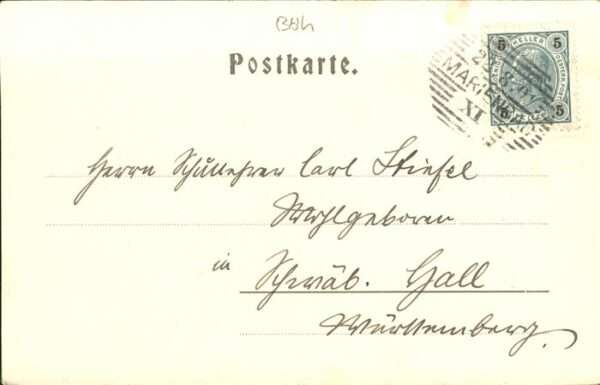 Böh
Postkarte.
5 HELLER 5
MARIENB
XI
5 5
Herrn Schullehrer Carl Stiefel
Wohlgeboren
in Schwäb. Hall
Württemberg.